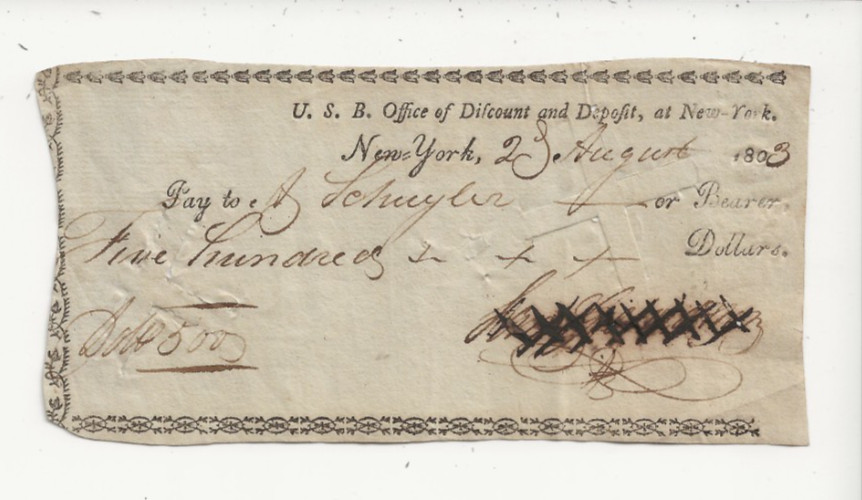 U. S. B. Office of Diſcount and Depoſit, at New-York.
New-York, August 1803
Pay to A Schuyler or Bearer,
Five hundred + + + Dollars.
Dolls 500